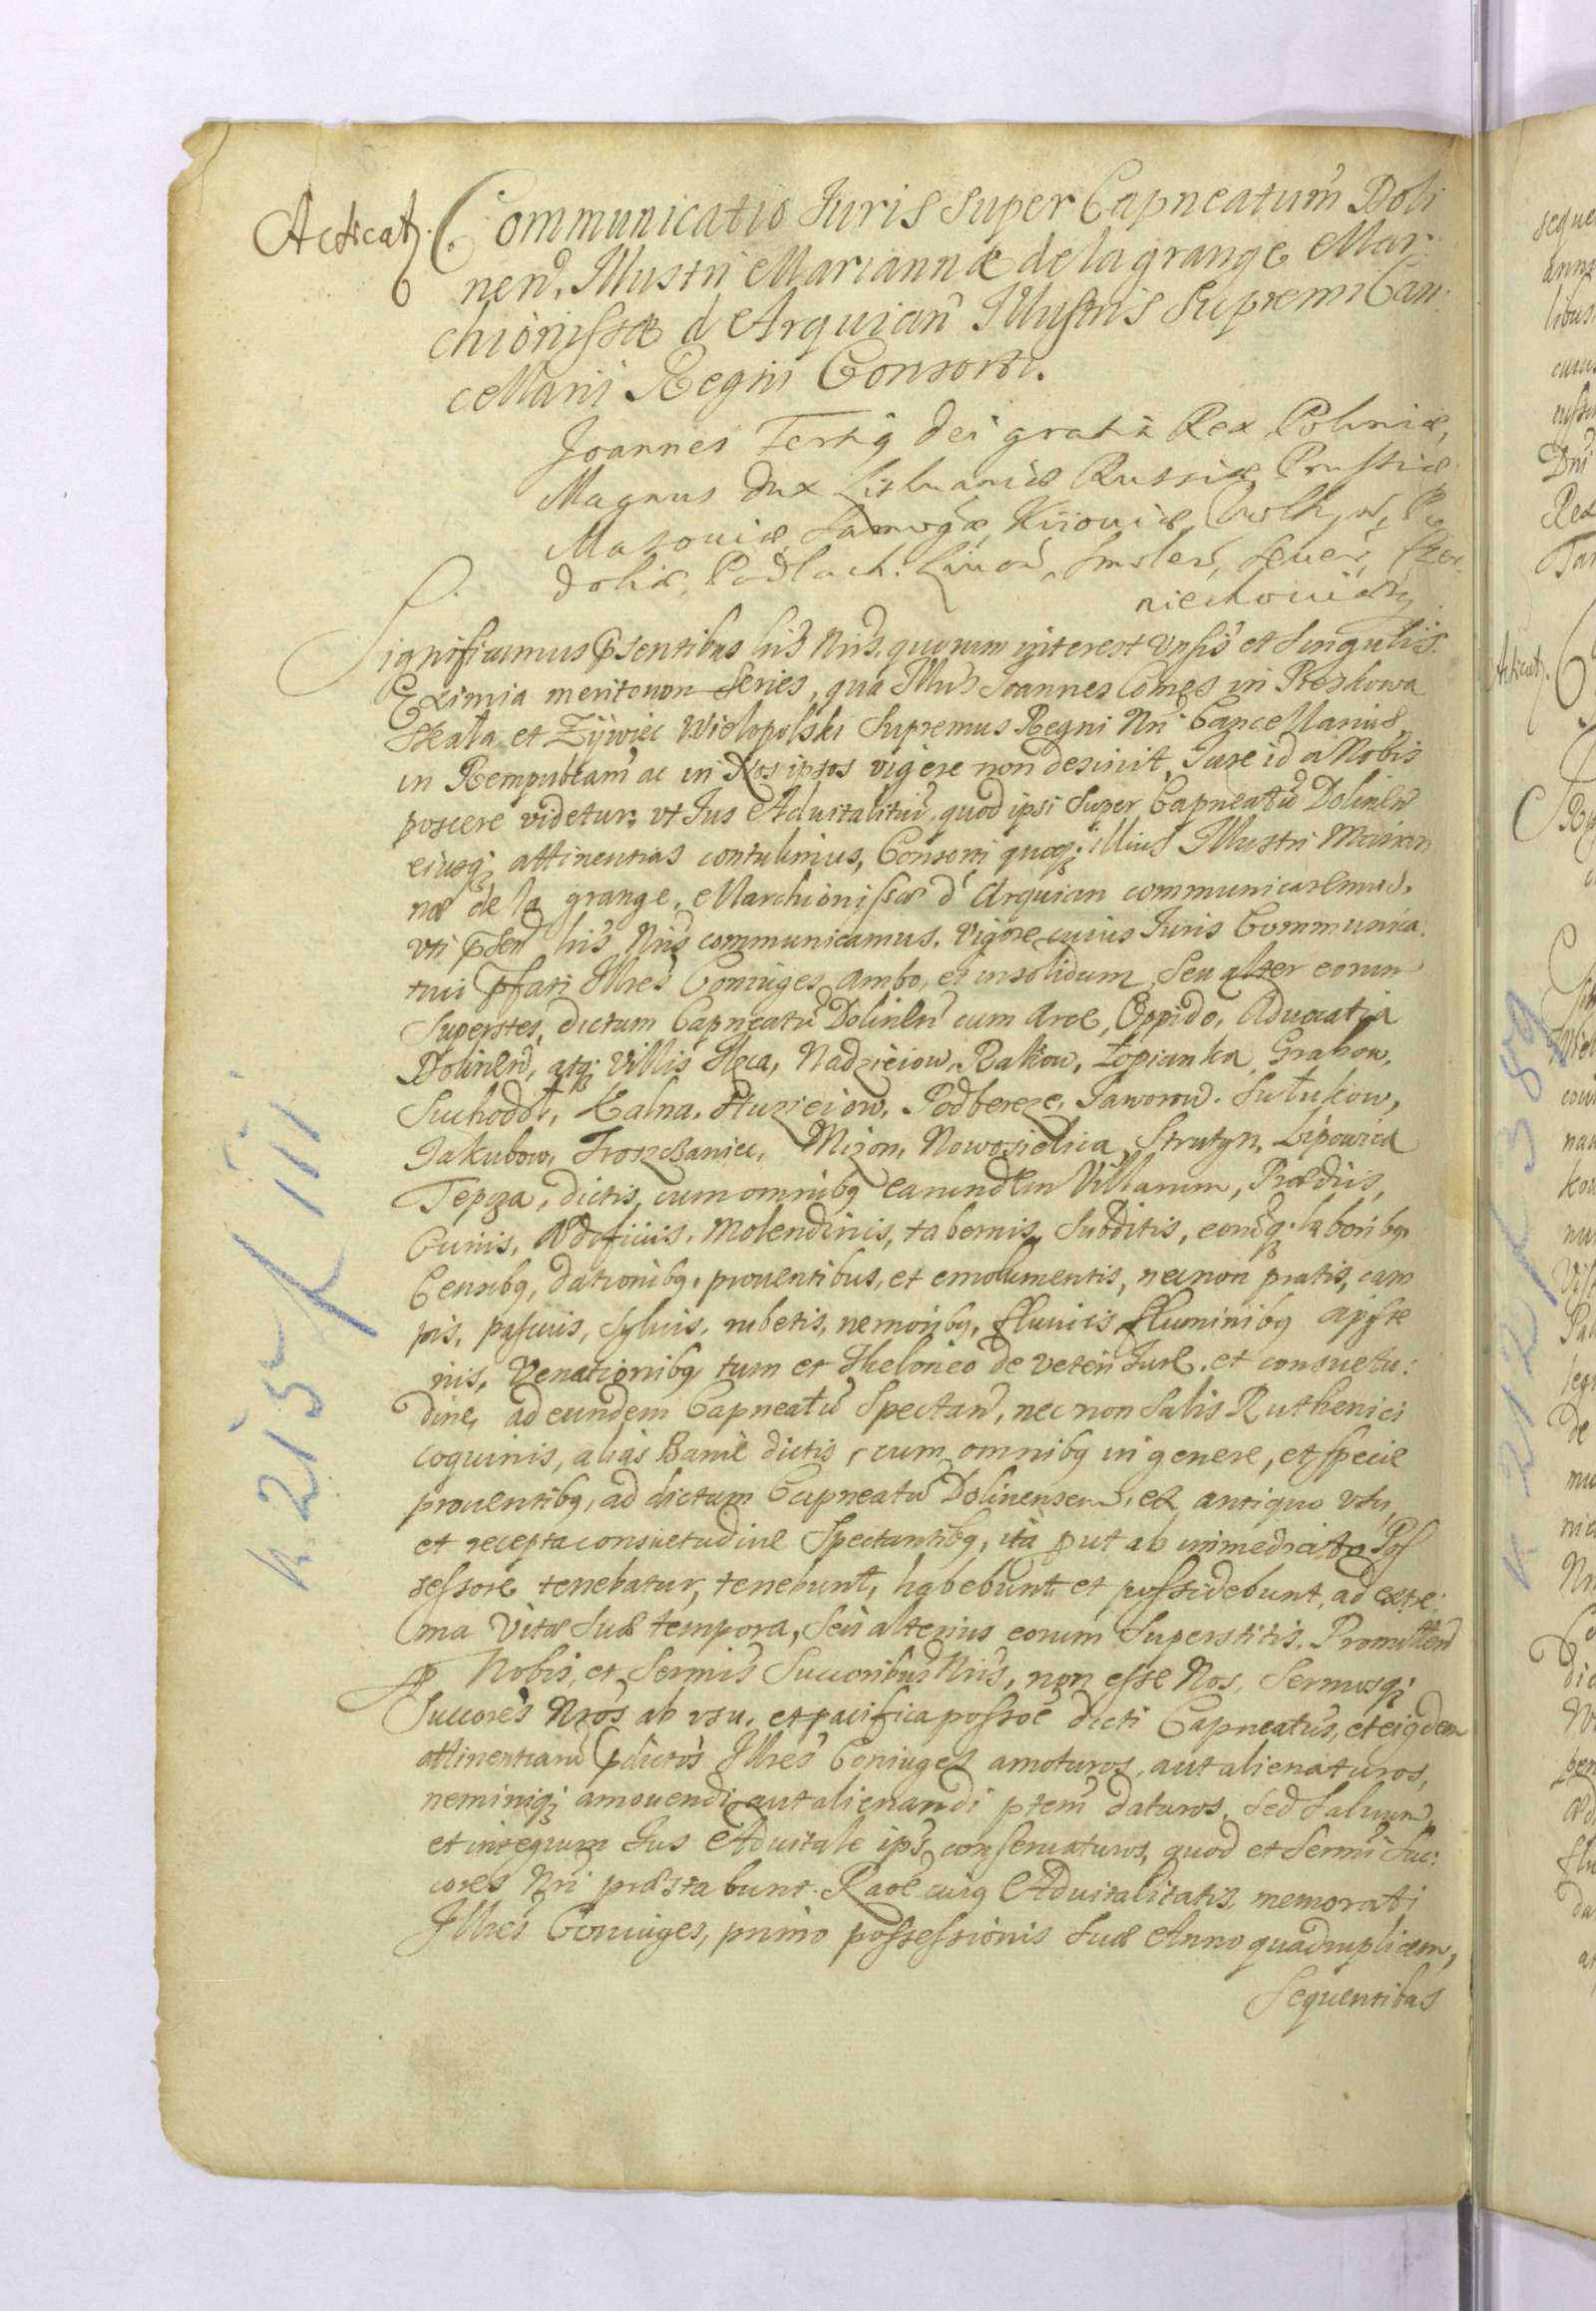 Acticat.
Communicatio Juris super Capneatum Doli
nen, Illustri Mariannæ de la grange Mar
chionissæ d Arquian Illustris Supremi Can
cellarij Regni Consorti.
Joannes Tertiq Dei gratia Rex Poloniæ,
Magnus Dux Lithuaniæ Russiæ Prussiæ
Masoviæ, Samogæ, Kijoviæ, Wolhyn, Po
doliæ, Podlach: Livon, Smolen, Seuer, Czer
niechouiæq
Significamus pntibus lris Nris, quorum interest Vnsis et Singulis.
Eximia meritorum Series, qua Illris Joannes Comes in Pieskowa
Skała et Żywiec Wielopolski Supremus Regni Nri Cancellarius
in Rempublcam ac in Nos ipsos vigere non desinit, Jure id a Nobis
poscere videtur, vt Jus Aduitalitiu, quod ipsi Super Capneatu Dolinen
eiusq attinentias contulimus, Consorti quoq illius Illustri Marian
næ de la grange, Marchionissæ d' Arquian communicaremus.
vti psen lris Nris communicamus. Vigore cuius Juris Communica
tiui pfati Illres Coniuges ambo, et insolidum, Seu alter eorum
Superstes, dictum Capneatu Dolinen cum Arce, Oppido, Aduocatia
Dolinen, atq Villis Hęca, Nadzieiow, Rakow, Łopianka, Grabow,
Suchodoł, Kalna, Stuzieiow, Podbereze, Jaworow, Sułukow,
Jakubow, Troszczaniec, Mizon, Nowosielica, Strutyn, Lipowica
Tepcza, dictis, cum omnibq earundem Villarum, Prædiis,
Curiis, Ædificiis, Molendinis, tabernis, Subditis, eorumq laboribq
Censibq, dationibq, prouentibus, et emolumentis, necnon pratis, cam
pis, pascuis, syluis, rubetis, nemoribq, fluuiis fluminibq apiste
riis, Venationibq, tum et Theloneo de veteri Jure, et consuetu:
dine, ad eundem Capneatu Spectan, nec non Salis Ruthenici
coquinis, aliàs Banie dictis, cum omnibq in genere, et specie
prouentibq, ad dictum Capneatu Dolinensem, ex antiquo vsu,
et recepta consuetudine Spectantibq, ita put ab immediato Pos
sessore tenebatur, tenebunt, habebunt et possidebunt, ad extre
ma Vitæ Suæ tempora, Seu alterius eorum Superstitis. Promitten
p Nobis, et Sermis Succoribus Nris, non esse Nos, Sermosq
Succores Nros ab vsu, et pacifica possoe dicti Capneatus, et eiqdem
attinentiaru pdictos Illres Coniuges amoturos, aut alienaturos,
neminiq amouendi aut alienandi ptem daturos, Sed Saluum
et integrum Jus Aduitale ips conseruaturos, quod et Sermi Suc:
cores Nri præstabunt. Raoe cuiq Aduitalitatis, memorati
Illres Coniuges, primo possessionis Suæ Anno quadruplicem,
Sequentibus